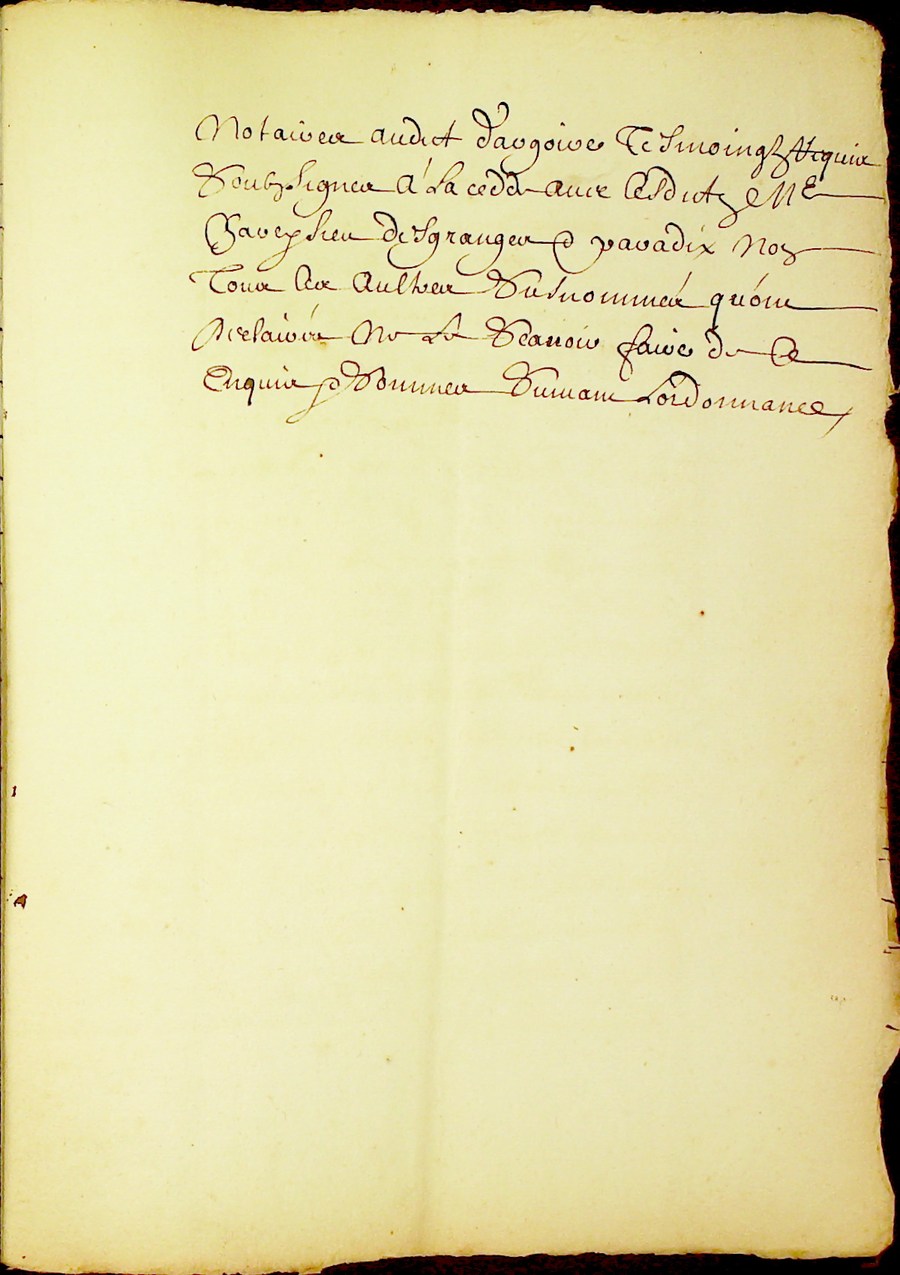 Notaires audict d'augoire Tesmoingz requis
Soubz signes A la cedde avec Lesdictz Me
sieur desgranges & paradix Non
Tous Les Aultres Susnommés qu'ont
Declairés Ne Le Scavoir faire de Ce
Enquis & Sommes Suivant L'ordonnance